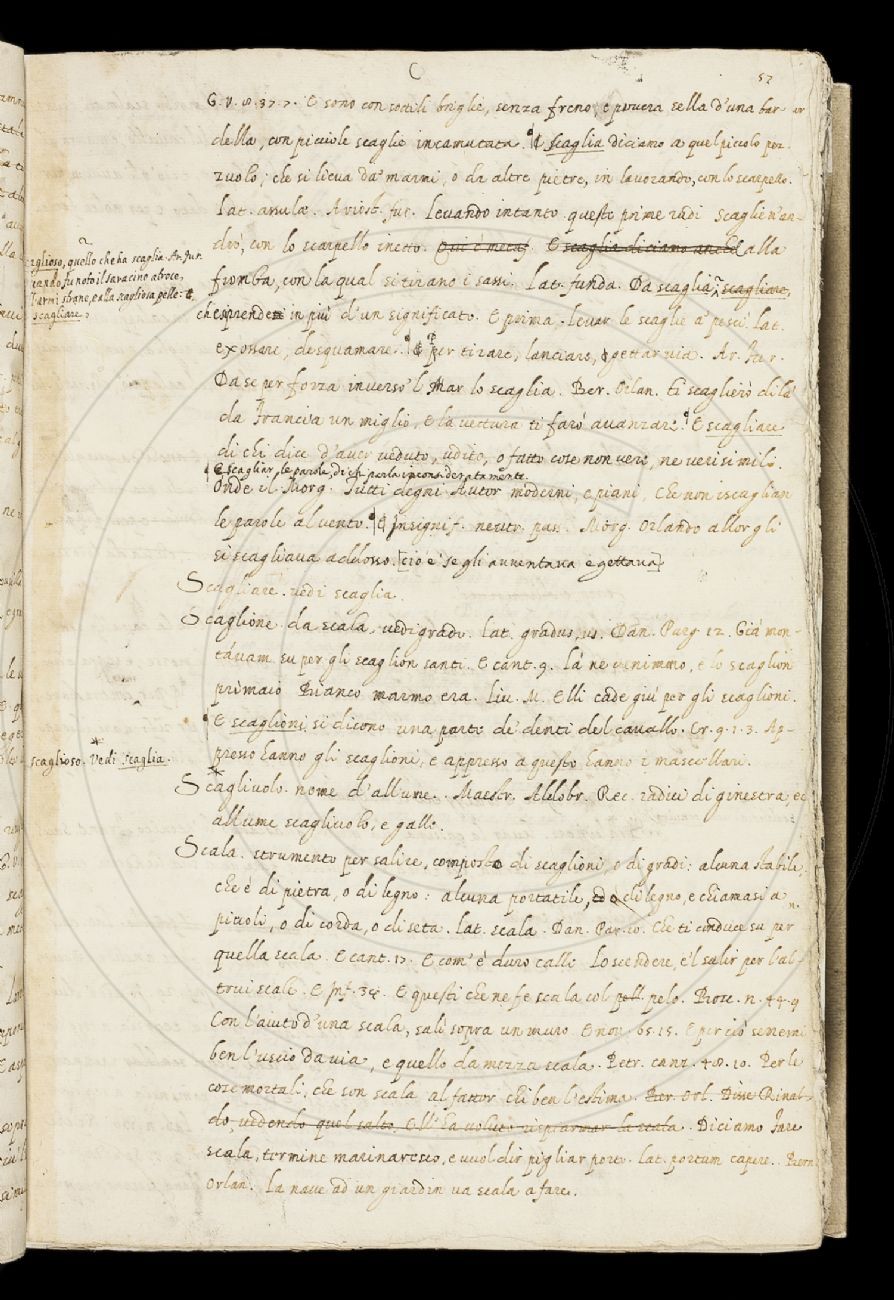 C
52
G. V. 8. 37. 7. E sono con sottili briglie, senza freno, e povera sella d'una bar-
della, con picciole scaglie incamutata. E scaglia diciamo a quel piccolo pez-
zuolo, che si lieva da' marmi, o da altre pietre, in lavorando, con lo scarpello.
Lat. assulae. Ariost. fur. Levando intanto queste prime rudi scaglie n'an-
drò, con lo scarpello inetto. E scaglia diciamo anche alla
fromba, con la qual si tirano i sassi. Lat. funda. Da scaglia, scagliare,
scaglioso, quello che ha scaglia. Ar. fur.
quando fu noto il saracino atroce,
l'armi strane, e alla scagliosa pelle: e,
scagliare,
che si prende in più d'un significato. E prima, levar le scaglie a' pesci. Lat.
exossare, desquamare. E per tirare, lanciare, gettar via. Ar. fur.
Da se per forza inverso 'l Mar lo scaglia. Ber. Orlan. ti scaglierò di là
da Francia un miglio, e la vettura ti farò avanzare. E scagliare
di chi dice d'aver veduto, udito, o fatto cose non vere, ne verisimili.
E scagliar le parole, di ch. parla inconsideratamente.
Onde il Morg. Tutti degni Autor moderni, e piani, che non iscaglian
le parole al vento. E in signif. neutr. pass. Morg. Orlando allor gli
si scagliava addosso. [cio è se gli avventava e gettava]
Scagliare. vedi scaglia.
Scaglione. da scala, vedi grado. Lat. gradus, us. Dan. Purg. 12. Già mon-
tavam su per gli scaglion santi. E cant. 9. Là ne venimmo, e lo scaglion
primaio Bianco marmo era. Liv. M. Elli cade giù per gli scaglioni.
E scaglioni si dicono una parte de' denti del cavallo. Cr. 9. 1. 3. Ap-
presso hanno gli scaglioni, e appresso a questo hanno i mascellari.
scaglioso. Vedi scaglia.
Scagliuolo. nome d'allume. Maestr. Aldobr. Rec. radici di ginestra, e
allume scagliuolo, e galle.
Scala. strumento per salire, composto di scaglioni, o di gradi: alcuna stabile,
che è di pietra, o di legno: alcuna portatile, ed è di legno, e chiamasi a
piuoli, o di corda, o di seta. Lat. scala. Dan. Par. 10. Che ti conduce su per
quella scala. E cant. 17. E com' è duro calle Lo scendere, e 'l salir per l'al-
trui scale. E Inf. 34. E questi che ne fe scala col pelo. Bocc. n. 44. 9
Con l'aiuto d'una scala, salì sopra un muro. E nov. 65. 15. E perciò serrerai
ben l'uscio da via, e quello da mezza scala. Petr. canz. 48. 10. Per le
cose mortali, che son scala al fattor chi ben l'estima. Ber. Orl. Disse Rinal-
do, vedendo quel salto, Ell' ha voluto risparmiar la scala. Diciamo fare
scala, termine marinaresco, e vuol dir pigliar porto. Lat. portum capere. Bern.
Orlan. La nave ad un giardin va scala a fare.